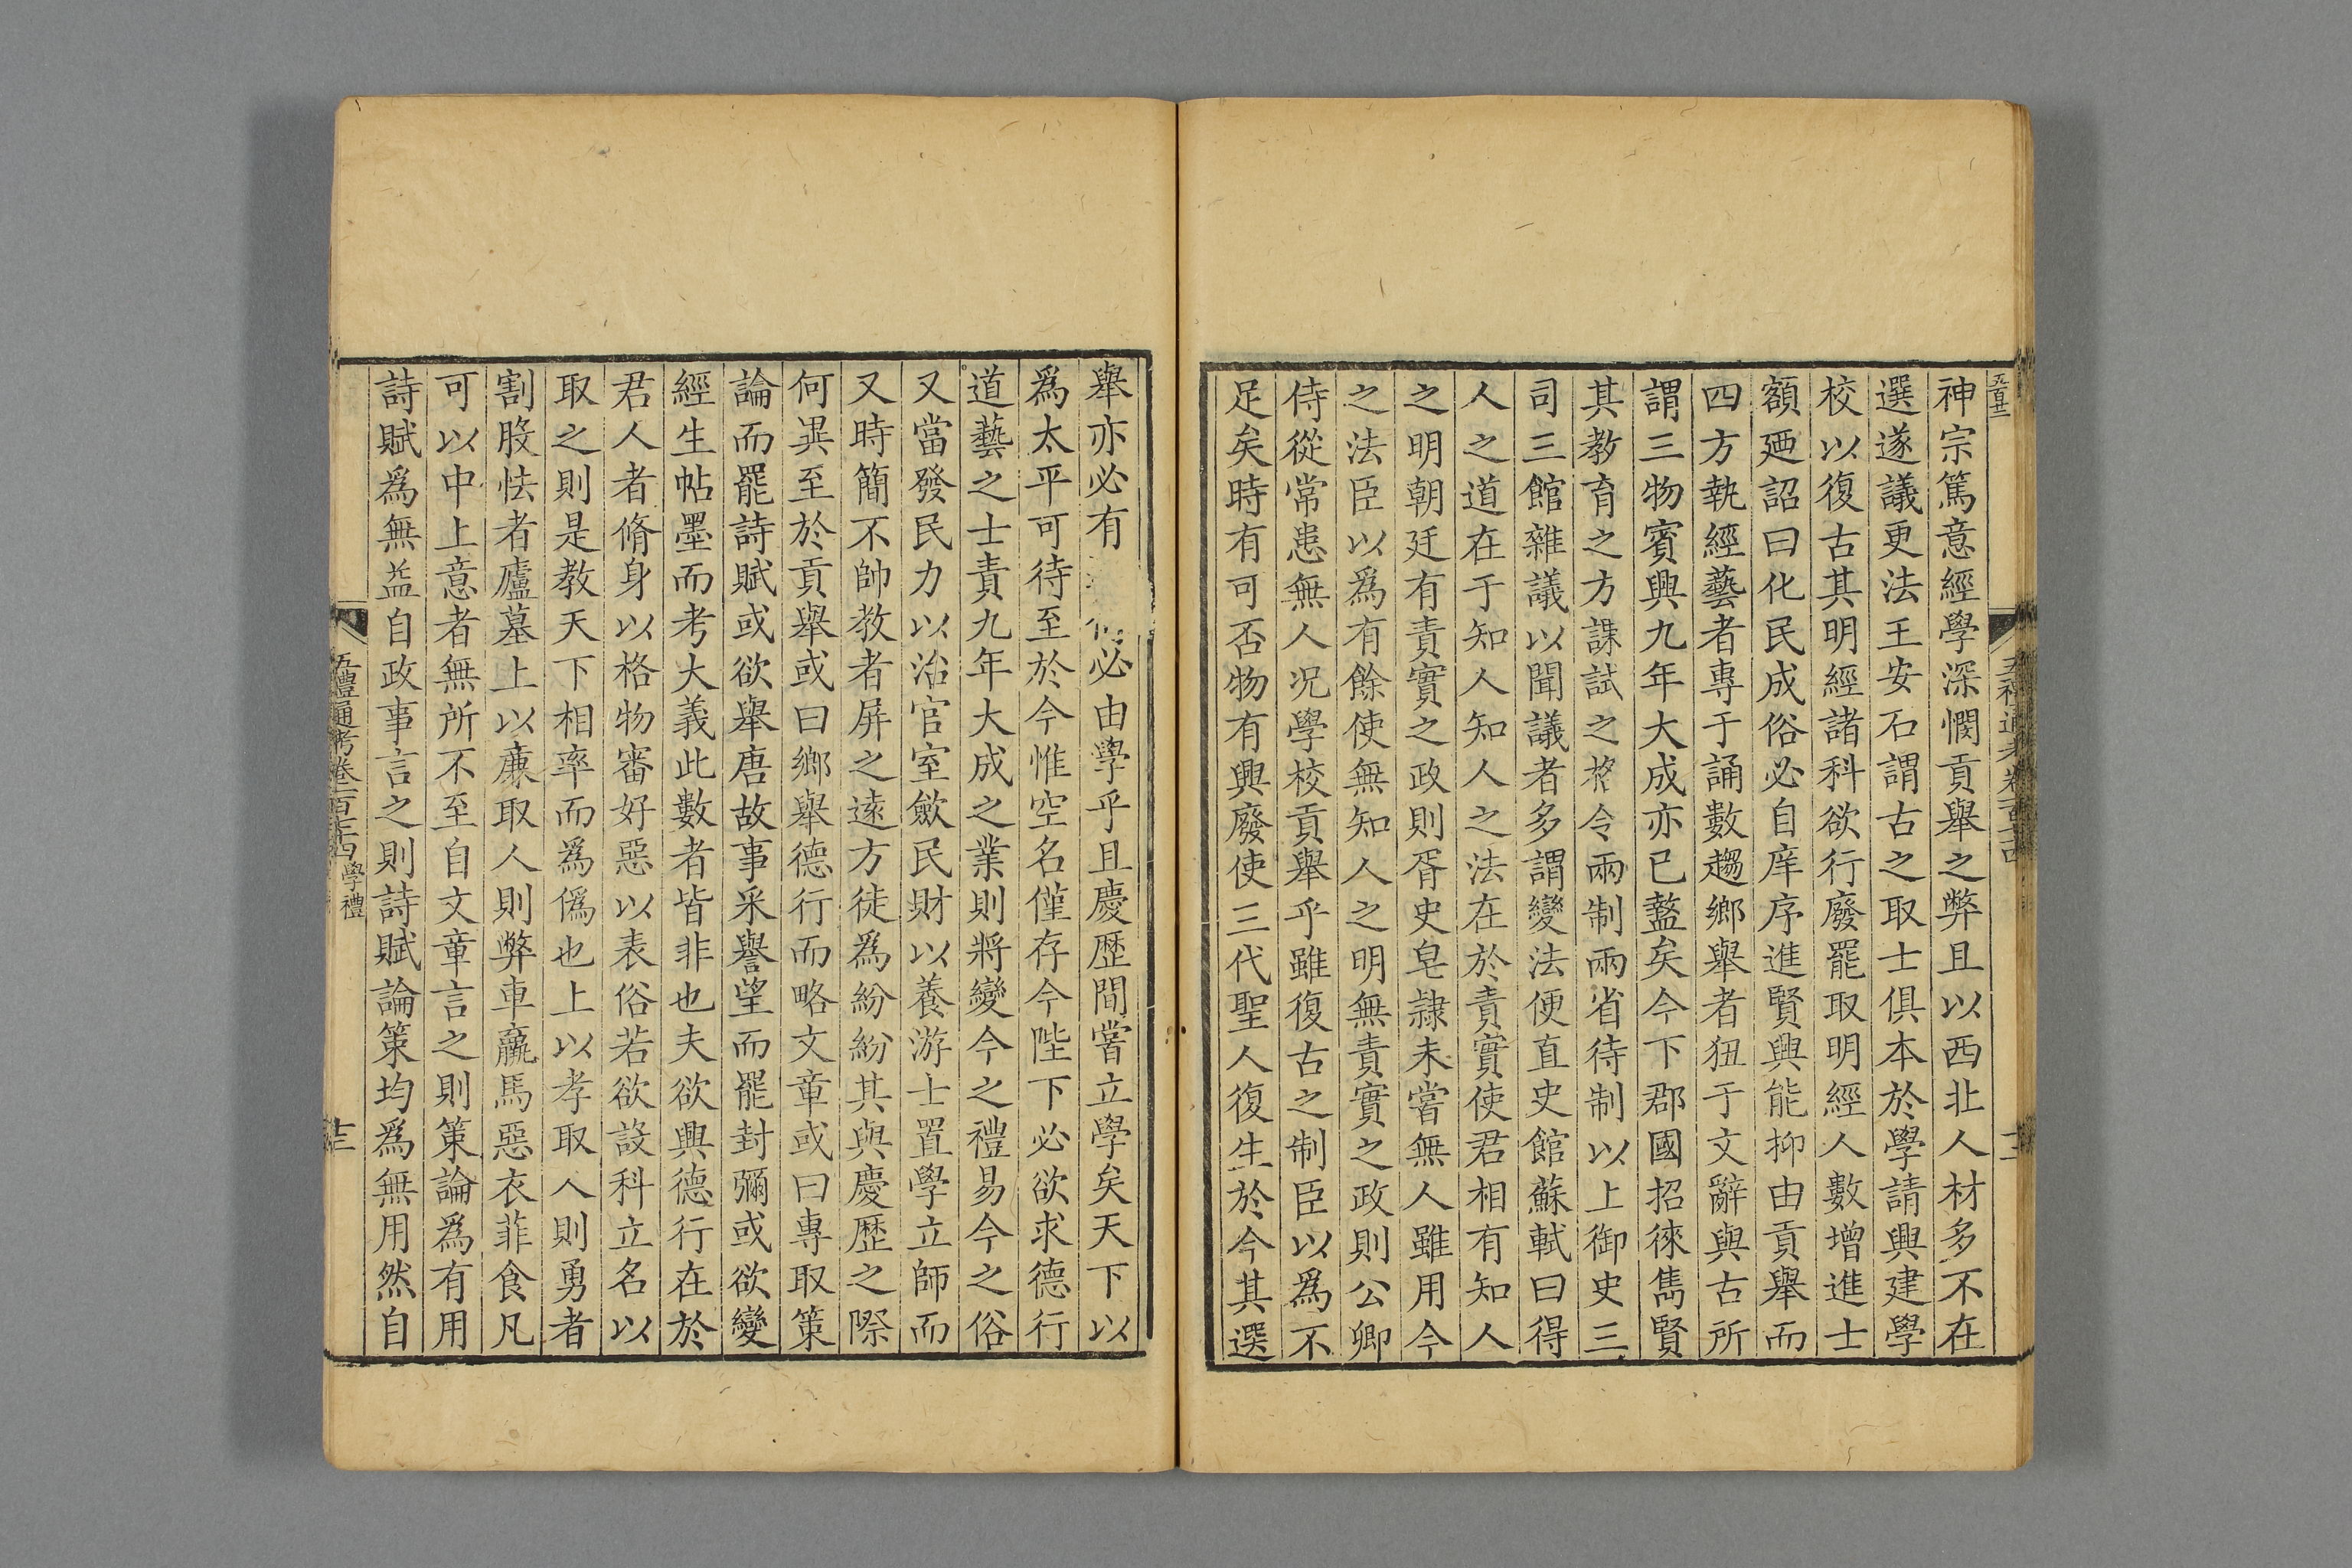 神宗篤意經學深憫貢舉之弊且以西北人材多不在
選遂議更法王安石謂古之取士俱本於學請興建學
校以復古其明經諸科欲行廢罷取明經人數增進士
額廼詔曰化民成俗必自庠序進賢興能抑由貢舉而
四方執經藝者專于誦數趨鄉舉者狃于文辭與古所
謂三物賓興九年大成亦已盭矣今下郡國招徠雋賢
其教育之方課試之格令兩制兩省待制以上御史三
司三館雜議以聞議者多謂變法便直史館蘇軾曰得
人之道在于知人知人之法在於責實使君相有知人
之明朝廷有責實之政則胥史皂隷未嘗無人雖用今
之法臣以爲有餘使無知人之明無責實之政則公卿
侍從常患無人況學校貢舉乎雖復古之制臣以爲不
足矣時有可否物有興廢使三代聖人復生於今其選
舉亦必有必由學乎且慶歷間嘗立學矣天下以
爲太平可待至於今惟空名僅存今陛下必欲求德行
道藝之士責九年大成之業則將變今之禮易今之俗
又當發民力以治官室斂民財以養游士置學立師而
又時簡不帥教者屏之遠方徒爲紛紛其與慶歷之際
何異至於貢舉或曰鄉舉德行而略文章或曰專取策
論而罷詩賦或欲舉唐故事采譽望而罷封彌或欲變
經生帖墨而考大義此數者皆非也夫欲興德行在於
君人者脩身以格物審好惡以表俗若欲設科立名以
取之則是教天下相率而爲僞也上以孝取人則勇者
割股怯者廬墓上以廉取人則弊車羸馬惡衣菲食凡
可以中上意者無所不至自文章言之則策論爲有用
詩賦爲無益自政事言之則詩賦論策均爲無用然自
五禮通考卷一百七十四 學禮
十三